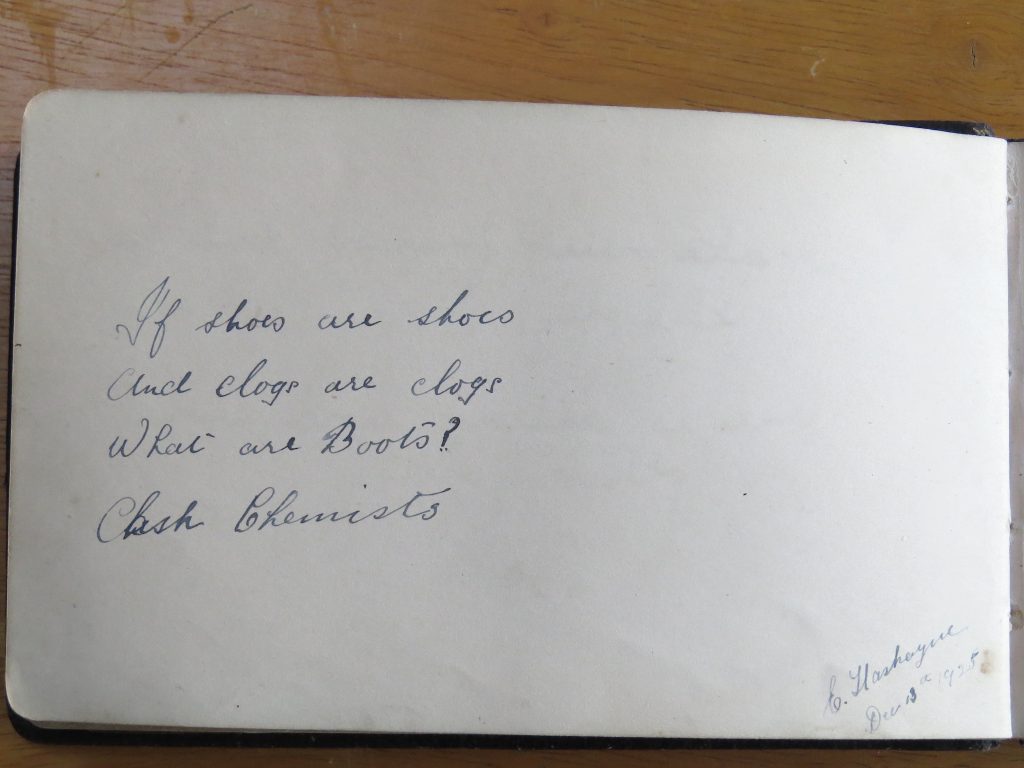 If shoes are shoes
And clogs are clogs
What are Boots?
Cash Chemists
C. Hashayne
Dec 13 1925